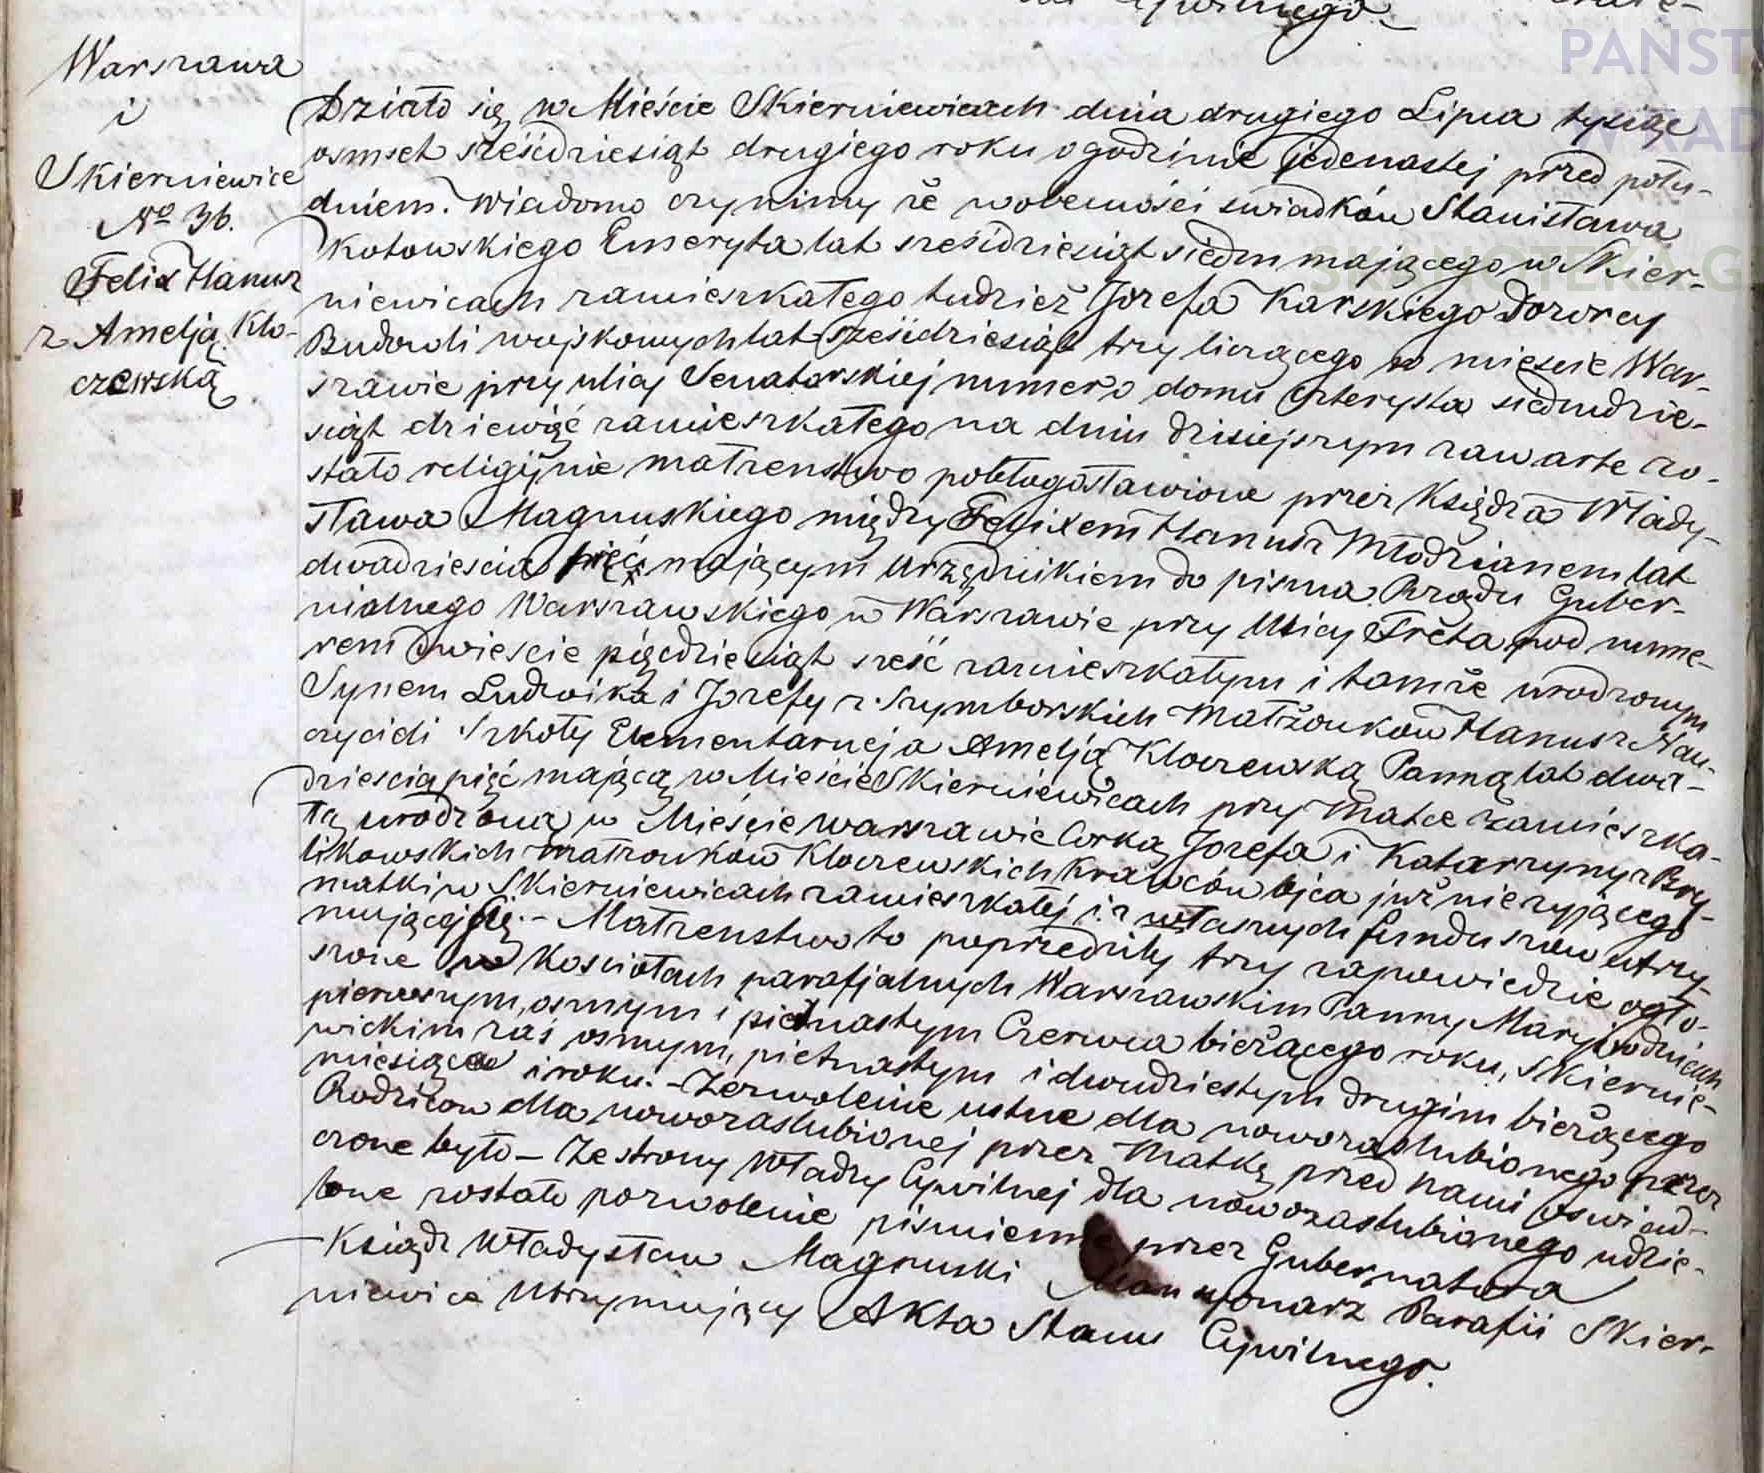 Cywilnego
PAŃST
W RAD
SKANOTEKA.G
Warszawa
i
Skierniewice
No 36.
Felix Hanusz
z Amelją Klo-
czewską
Działo się w Mieście Skierniewicach dnia drugiego Lipca tysiąc
osmset sześcdziesiąt drugiego roku o godzinie jedenastej przed połu-
dniem. Wiadomo czynimy że w obecności swiadków Stanisława
Kotowskiego Emeryta lat sześcdziesiąt siedm mającego w Skier-
niewicach zamieszkałego tudzież Jozefa Karskiego Dozorcy
Budowli wojskowych lat sześcdziesiąt trzy liczącego w mieście War-
szawie przy ulicy Senatorskiej numero domu czterysta siedmdzie-
siąt dziewięć zamieszkałego na dniu dzisiejszym zawarte zo-
stało religijnie małżenstwo pobłogosławione przez Księdza Włady-
sława Magnuskiego między Felixem Hanusz Młodzianem lat
dwadzieścia pięć mającym Urzędnikiem do pisma Rządu Guber-
nialnego Warszawskiego w Warszawie przy Ulicy Freta pod nume-
rem dwieście pięćdziesiąt sześć zamieszkałym i tamże urodzonym
Synem Ludwika i Jozefy z Szymborskich Małżonków Hanusz Nau-
czycieli Szkoły Elementarnej a Amelją Kloczewską Panną lat dwa-
dzieścia pięć mającą w Mieście Skierniewicach przy Matce zamieszka-
łą urodzoną w Mieście Warszawie Corką Jozefa i Katarzyny z Bry-
likowskich małżonków Kloczewskich Krawców ojca już nieżyjącego
matki w Skierniewicach zamieszkałej i z własnych funduszow utrzy-
mującej się. - Małżenstwo to poprzedziły trzy zapowiedzie ogło-
szone w Kościołach parafjalnych Warszawskim Panny Maryi w dniach
pierwszym, osmym i piętnastym Czerwca bieżącego roku, Skiernie-
wickim zaś osmym, piętnastym i dwudziestym drugim bieżącego
miesiąca i roku. - Zezwolenie ustne dla nowozaslubionego przez
Rodzicow dla nowozaslubionej przez Matkę przed nami oswiad-
czone było - Ze strony Władzy Cywilnej dla nowozaslubionego udzie-
lone zostało pozwolenie pismienne przez Gubernatora
Ksiądz Władysław Magnuski Mansyonarz Parafii Skier-
niewice Utrzymujący Akta Stanu Cywilnego.